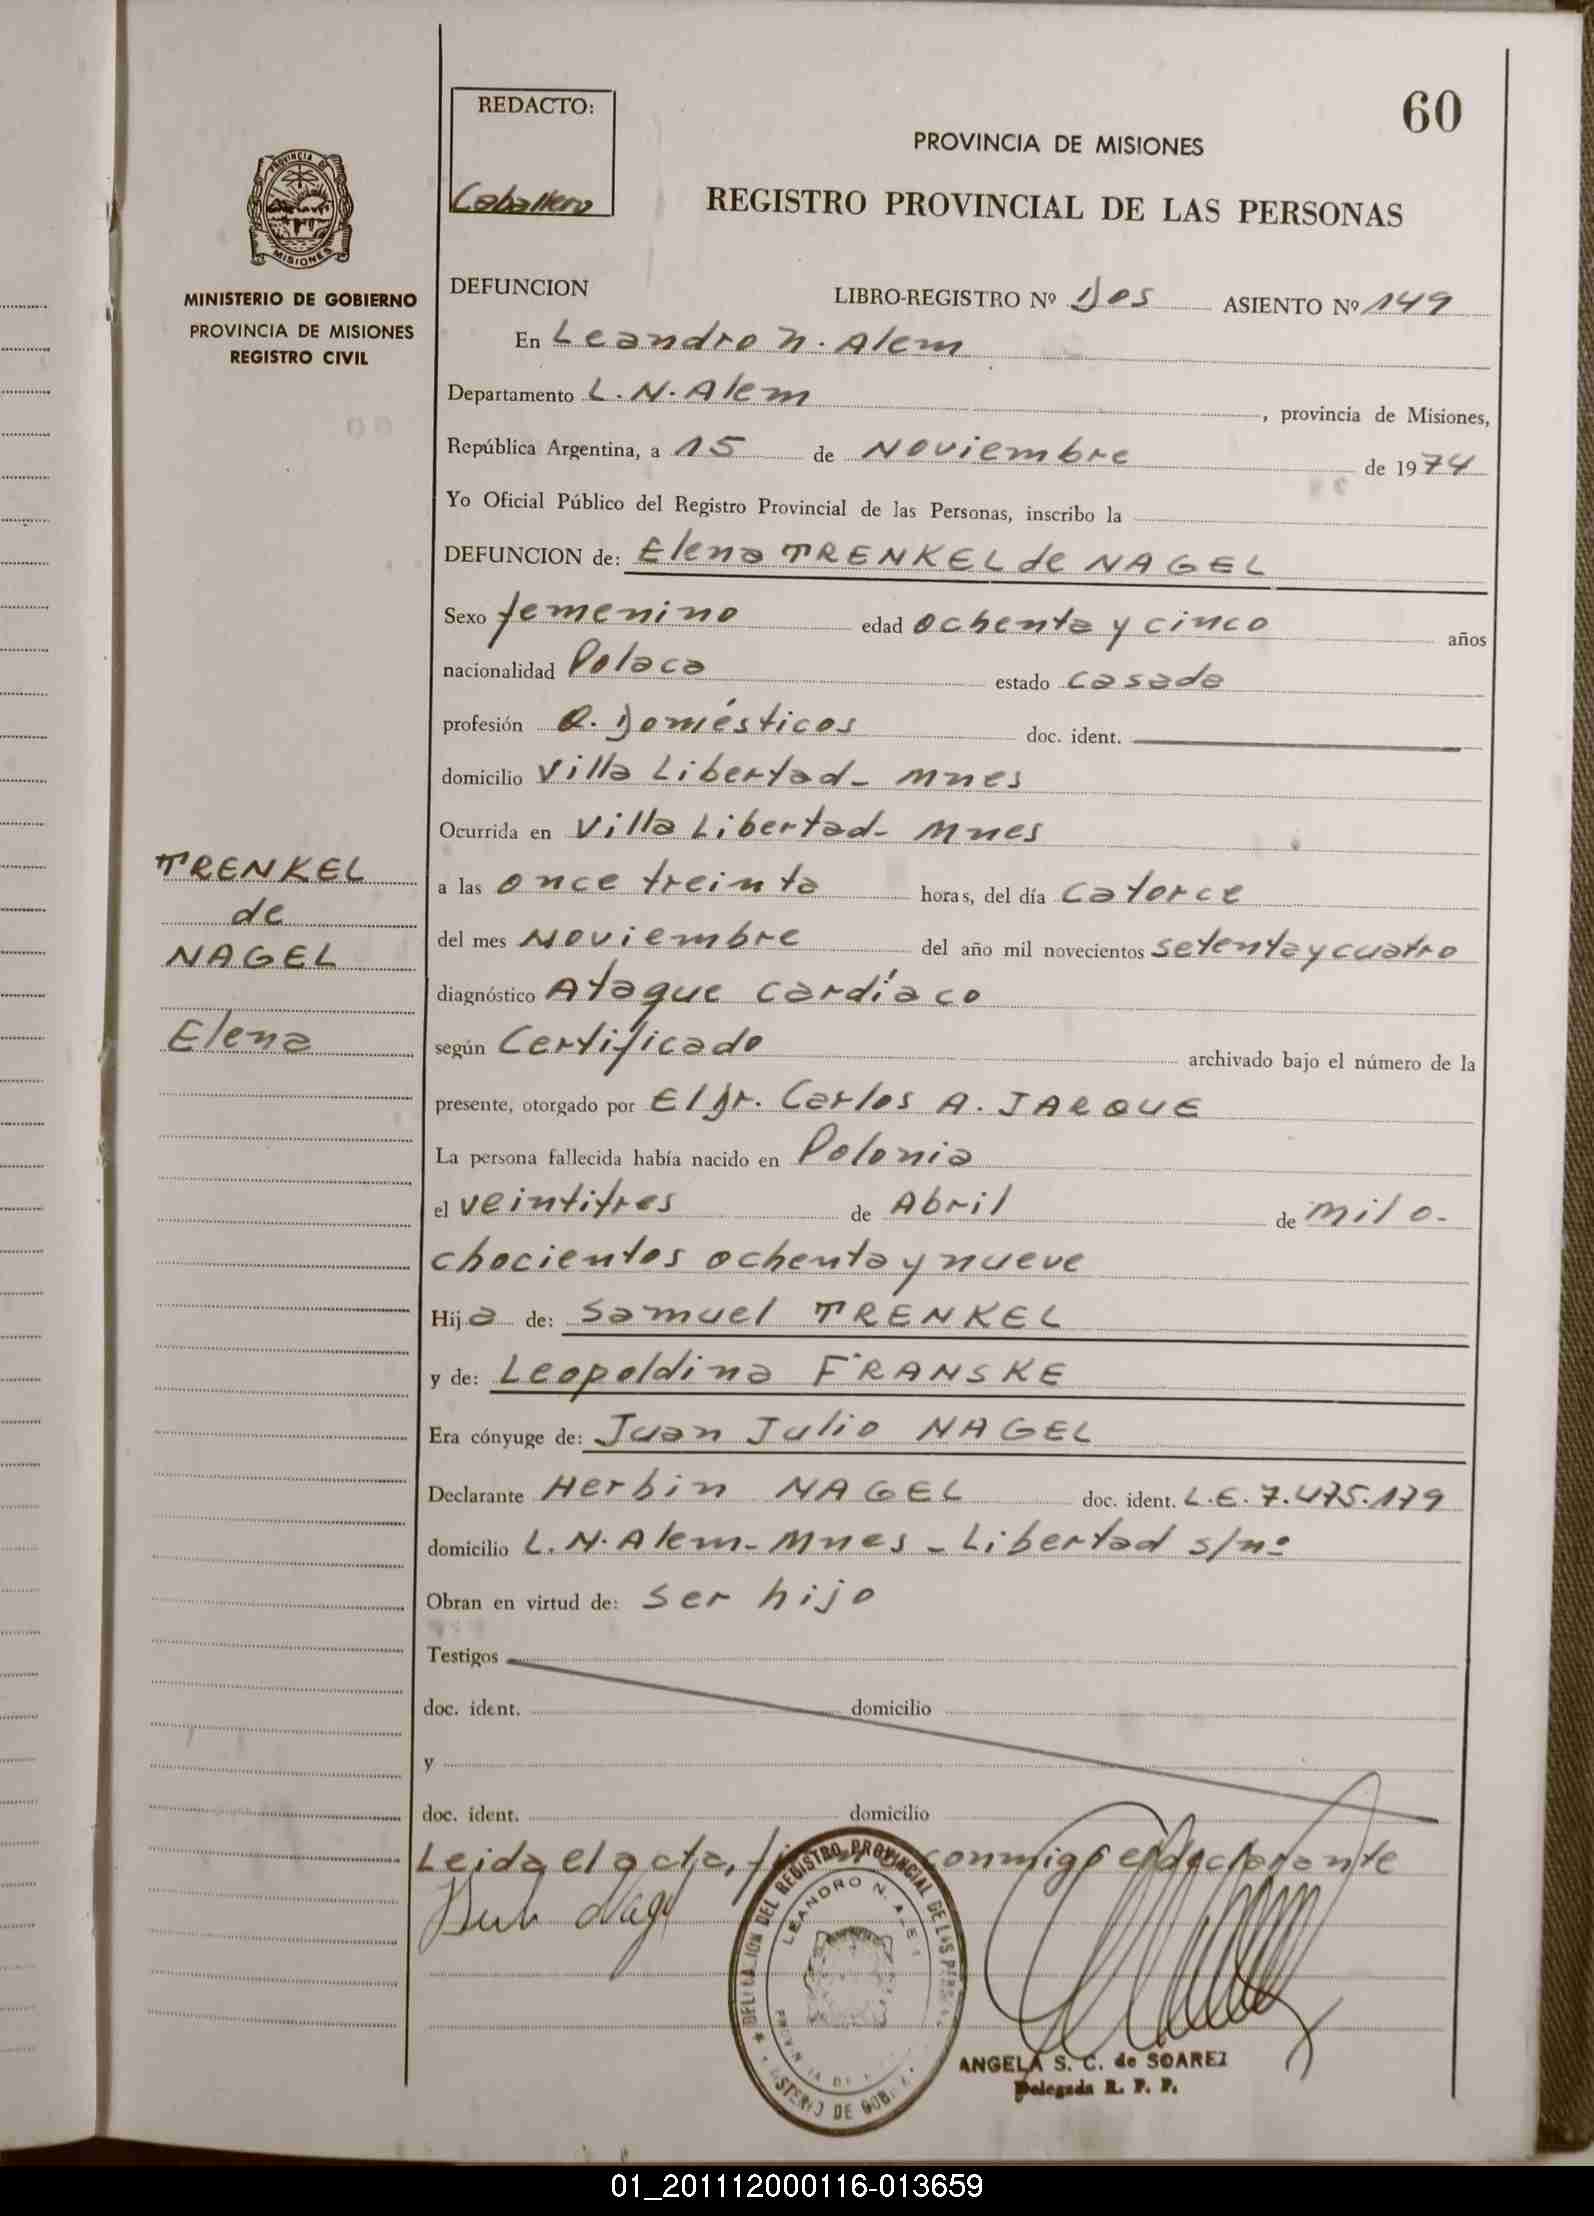 60
REDACTO:
Caballero
PROVINCIA DE MISIONES
REGISTRO PROVINCIAL DE LAS PERSONAS
PROVINCIA DE
MISIONES
MINISTERIO DE GOBIERNO
PROVINCIA DE MISIONES
REGISTRO CIVIL
DEFUNCION LIBRO-REGISTRO Nº Dos ASIENTO Nº 149
En Leandro N. Alem
Departamento L. N. Alem, provincia de Misiones,
República Argentina, a 15 de Noviembre de 1974
Yo Oficial Público del Registro Provincial de las Personas, inscribo la
DEFUNCION de: Elena TRENKEL de NAGEL
Sexo femenino edad ochenta y cinco años
nacionalidad Polaca estado casada
profesión Q. Domésticos doc. ident.
domicilio Villa Libertad - Mnes
Ocurrida en Villa Libertad - Mnes
TRENKEL
de
NAGEL
Elena
a las once treinta horas, del día catorce
del mes Noviembre del año mil novecientos setenta y cuatro
diagnóstico Ataque cardíaco
según Certificado archivado bajo el número de la
presente, otorgado por El Dr. Carlos A. JARQUE
La persona fallecida había nacido en Polonia
el veintitres de Abril de mil o-
chocientos ochenta y nueve
Hija de: Samuel TRENKEL
y de: Leopoldina FRANSKE
Era cónyuge de: Juan Julio NAGEL
Declarante Herbin NAGEL doc. ident. L.E. 7.475.179
domicilio L. N. Alem - Mnes - Libertad s/nº
Obran en virtud de: ser hijo
Testigos
doc. ident. domicilio
y
doc. ident. domicilio
Leida el acta, conmigo el declarante
DEL REGISTRO PROVINCIAL DE LAS
LEANDRO N.
DE GOB
ANGELA S. C. de SOAREZ
Delegada R. P. P.
01_201112000116-013659